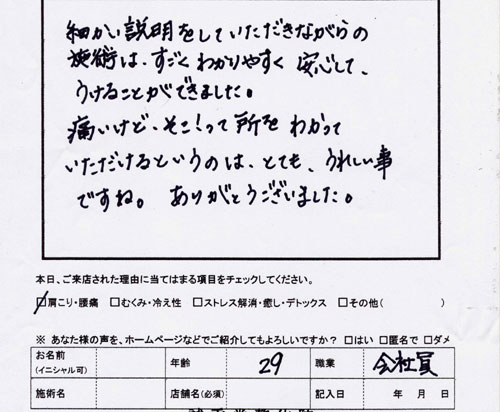 細かい説明をしていただきながらの
施術は、すごくわかりやすく安心して、
うけることができました。
痛いけど、そこ!って所をわかって
いただけるというのは、とても、うれしい事
ですね。ありがとうございました。
本日、ご来店された理由に当てはまる項目をチェックしてください。
□肩こり・腰痛 □むくみ・冷え性 □ストレス解消・癒し・デトックス □その他( )
※ あなた様の声を、ホームページなどでご紹介してもよろしいですか? □はい □匿名で □ダメ
お名前 (イニシャル可) 年齢 29 職業 会社員
施術名 店舗名(必須) 記入日 年 月 日